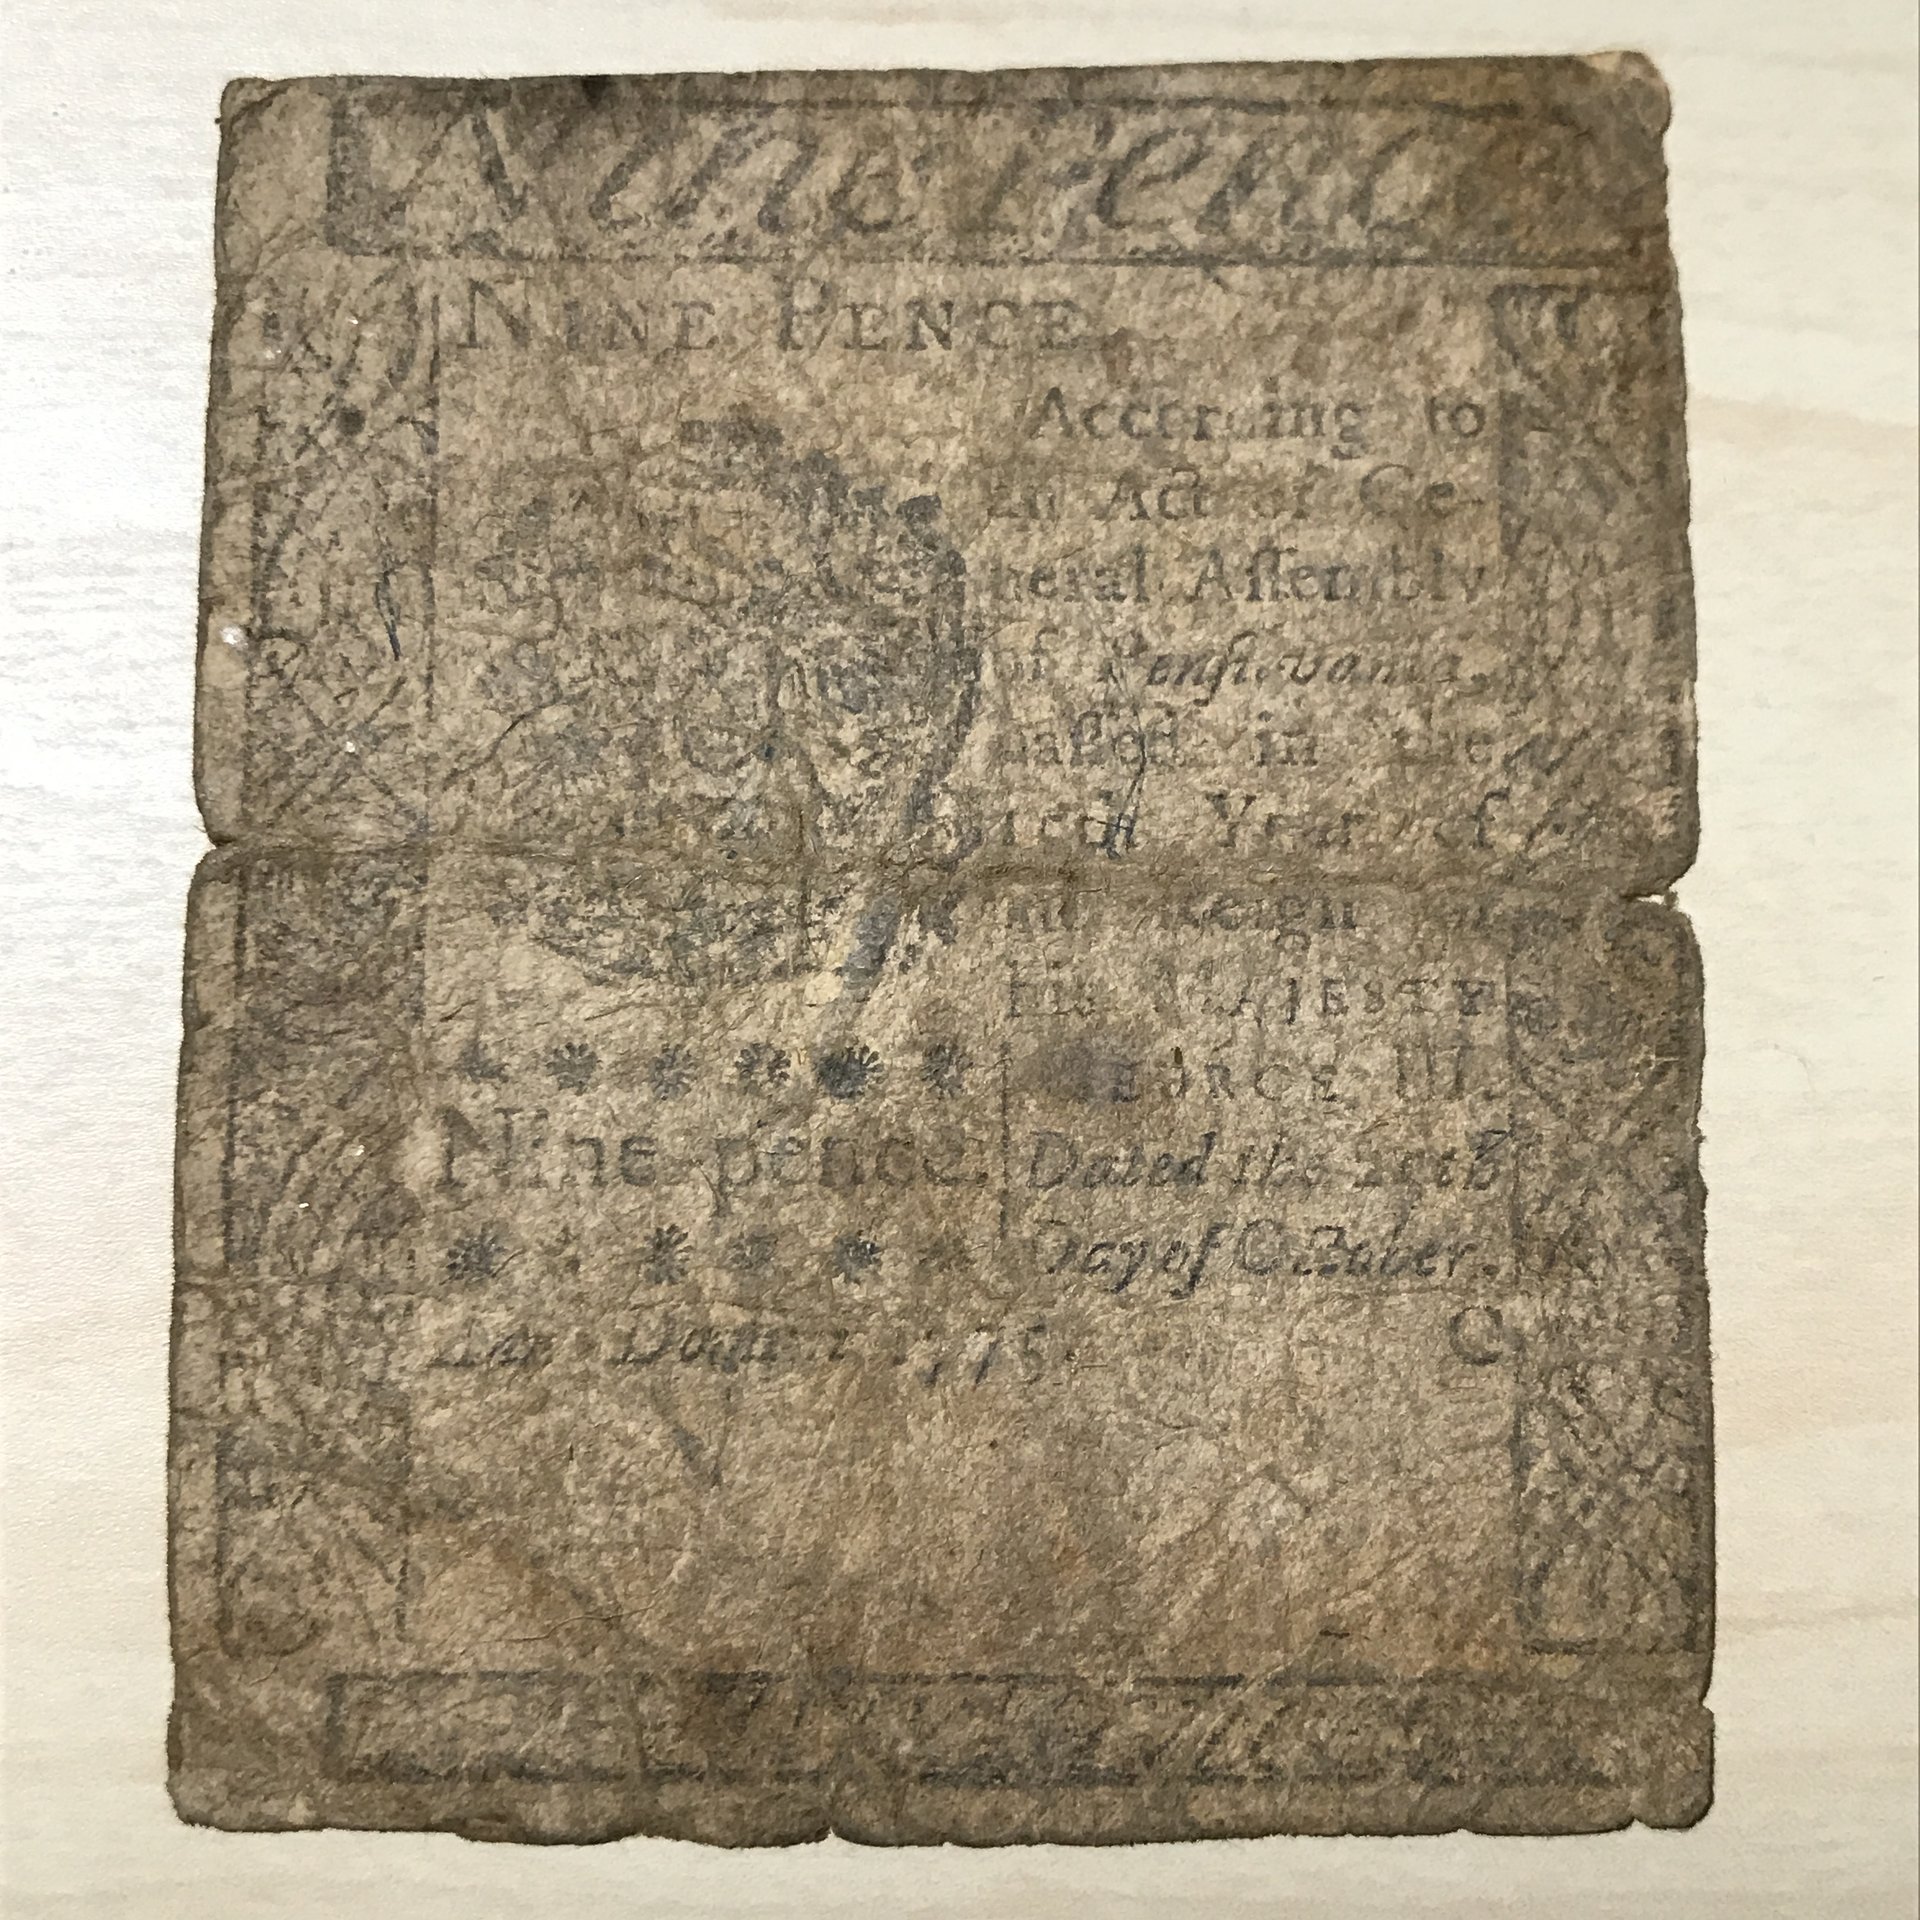 Nine Penc
NINE PENCE
According to
an Act of Ge-
neral Aſſembly
of Penſilvania,
paſſed in the
Year of
Reign
his MAJESTY
GEORGE III.
Nine pence.
Dated the
Day of October.
Ann. Domini 1775.
C